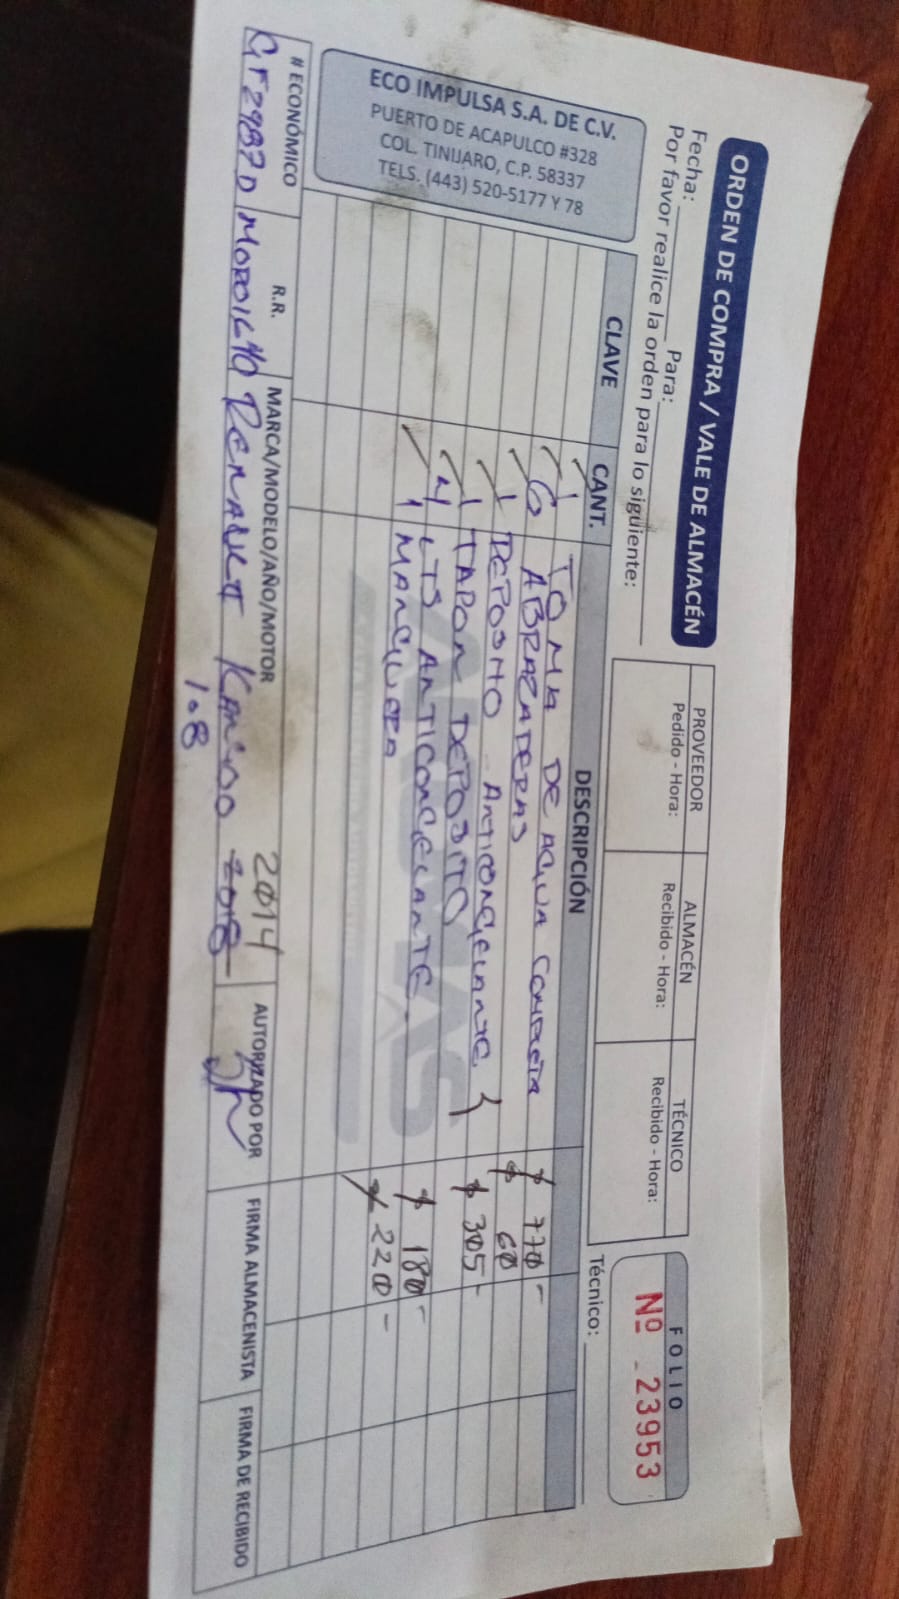 ORDEN DE COMPRA / VALE DE ALMACÉN
Fecha: Para:
Por favor realice la orden para lo siguiente:
PROVEEDOR ALMACÉN TÉCNICO
Pedido - Hora: Recibido - Hora: Recibido - Hora:
FOLIO
Nº 23953
Técnico:
ECO IMPULSA S.A. DE C.V.
PUERTO DE ACAPULCO #328
COL. TINIJARO, C.P. 58337
TELS. (443) 520-5177 Y 78
CLAVE CANT. DESCRIPCIÓN
1 TOMA DE AGUA COMPLETA $ 770-
6 ABRAZADERAS $ 60
1 DEPOSITO ANTICONGELANTE } $ 305-
1 TAPON DEPOSITO
4 LTS ANTICONGELANTE $ 180-
1 MANGUERA $ 220-
# ECONÓMICO R.R. MARCA/MODELO/AÑO/MOTOR 2014 AUTORIZADO POR FIRMA ALMACENISTA FIRMA DE RECIBIDO
GF2987D RENAULT KANGOO 2018
1.8